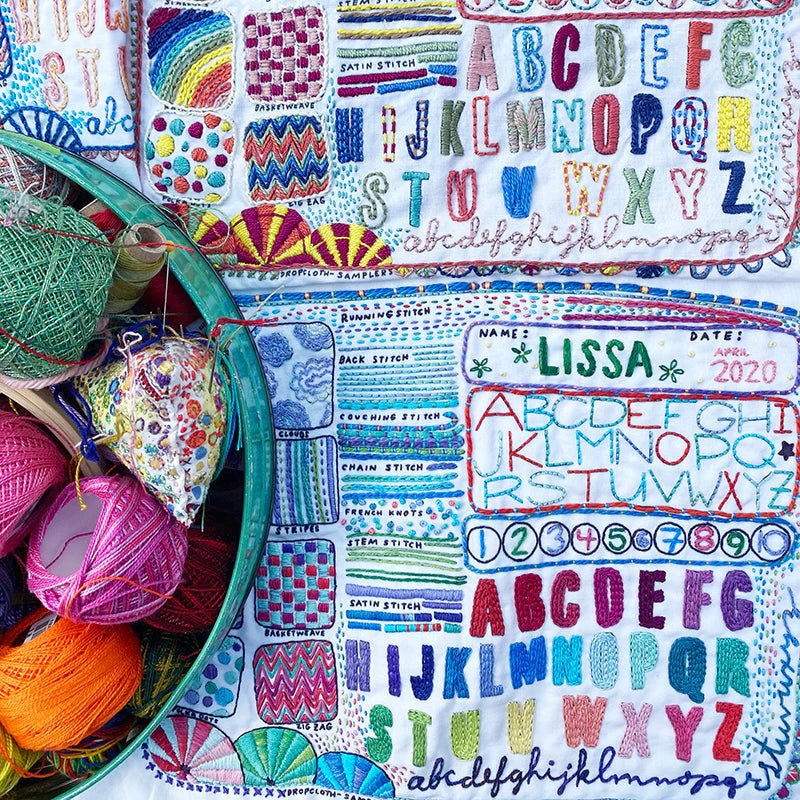 STEM STITCH
SATIN STITCH
BASKETWEAVE
ZIG ZAG
ABCDEFG
HIJKLMNOPQR
STUVWXYZ
abcdefghijklmnopqr
stuvwxyz
DROPCLOTH-SAMPLERS
abc
RUNNING STITCH
NAME: LISSA
DATE: APRIL 2020
BACK STITCH
ABCDEFGHI
JKLMNOPQ
RSTUVWXYZ
COUCHING STITCH
CLOUDS
CHAIN STITCH
FRENCH KNOTS
1 2 3 4 5 6 7 8 9 10
STRIPES
STEM STITCH
SATIN STITCH
BASKETWEAVE
ABCDEFG
HIJKLMNOPQR
STUVWXYZ
ZIG ZAG
abcdefghijklmnopqr
stuvwxyz
DROPCLOTH-SAMPLERS